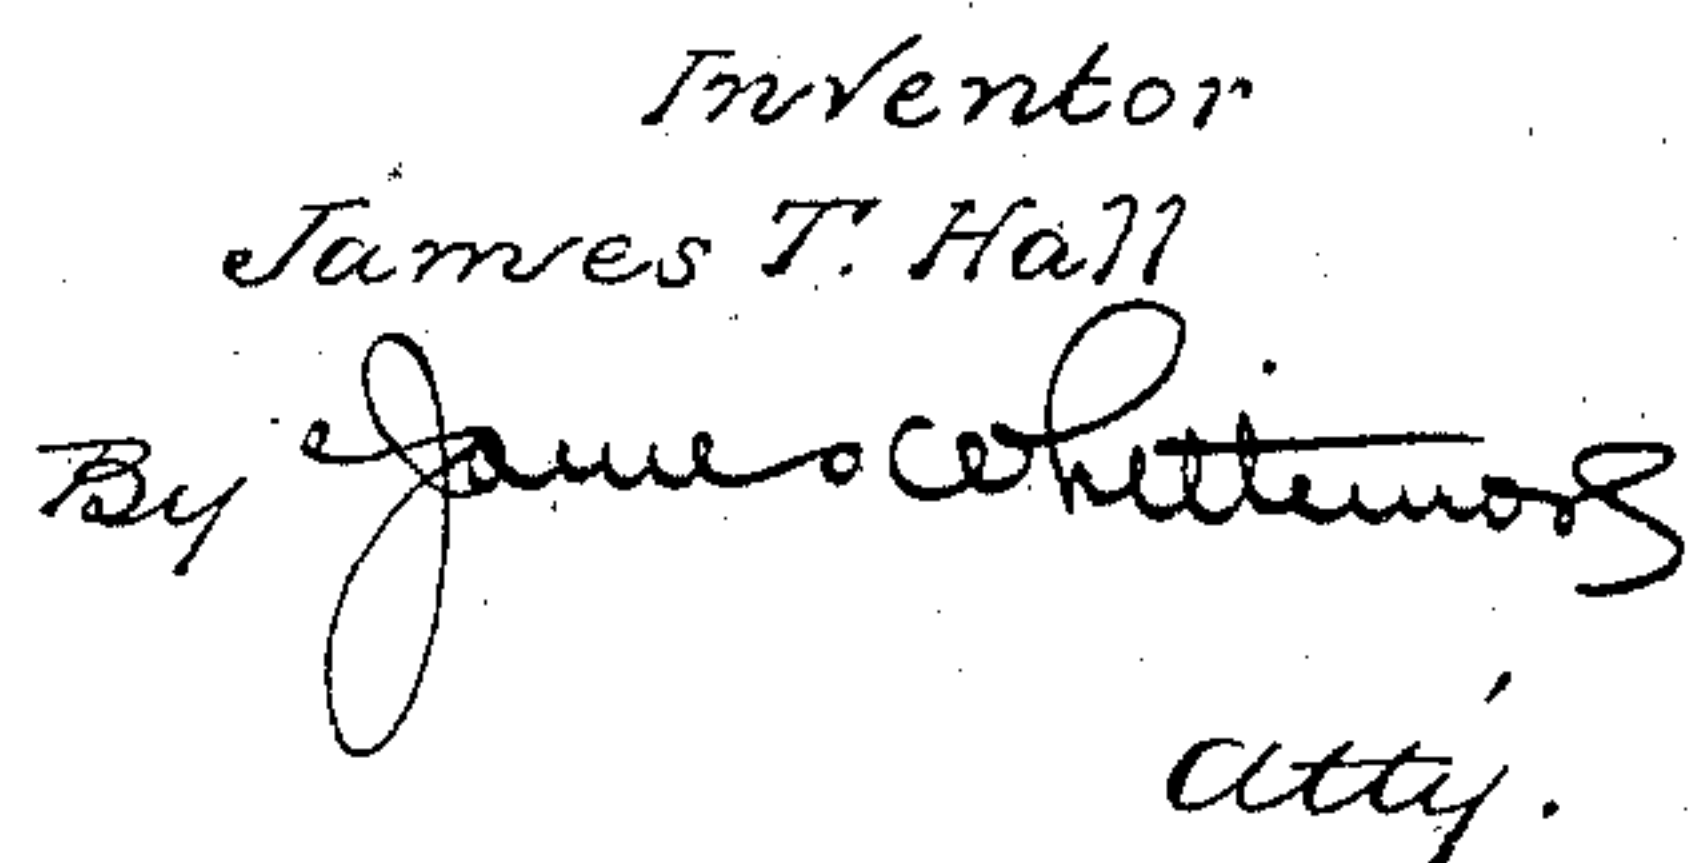 Inventor
James T. Hall
By James Whittemore
Att'y.